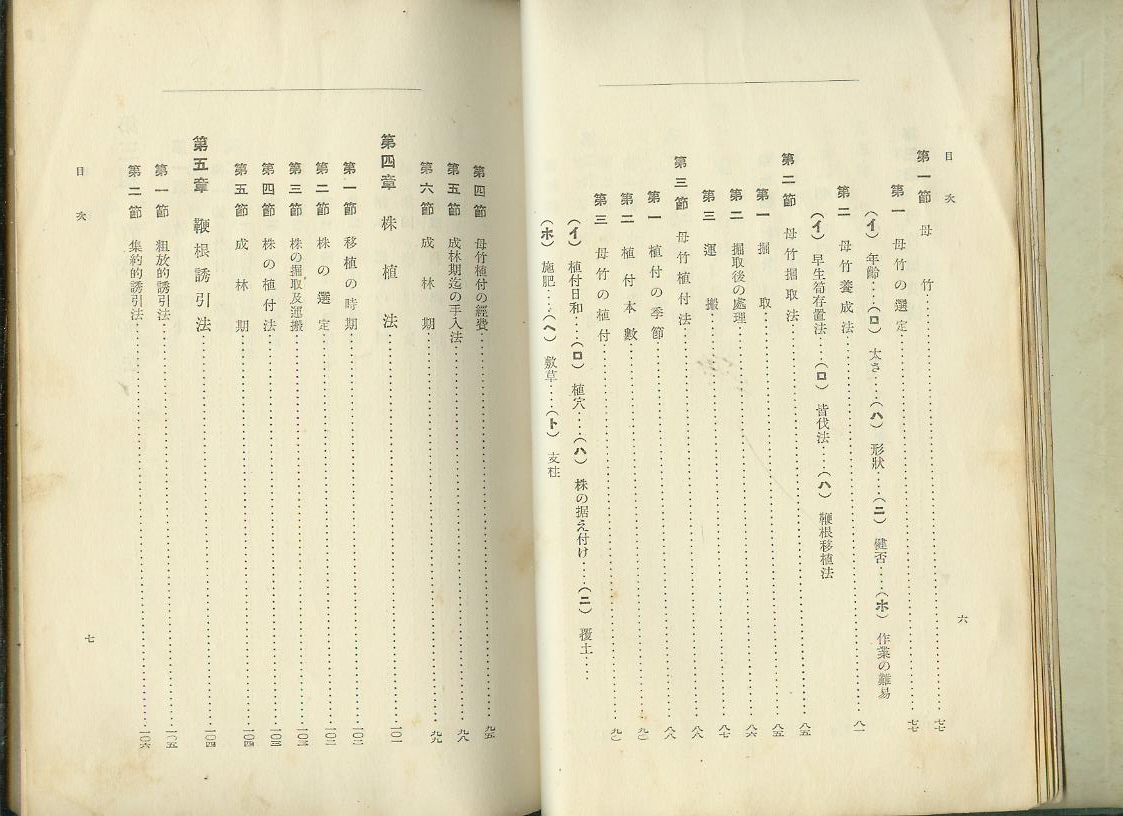 目次
第一節 母竹……七七
第一 母竹の選定……七七
(イ) 年齢……(ロ) 太さ……(ハ) 形狀……(ニ) 健否……(ホ) 作業の難易
第二 母竹養成法……八一
(イ) 早生筍存置法……(ロ) 皆伐法……(ハ) 鞭根移植法
第二節 母竹掘取法……八五
第一 掘取……八五
第二 掘取後の處理……八六
第三 運搬……八七
第三節 母竹植付法……八八
第一 植付の季節……八八
第二 植付本數……九〇
第三 母竹の植付……九〇
(イ) 植付日和……(ロ) 植穴……(ハ) 株の据え付け……(ニ) 覆土……
(ホ) 施肥……(ヘ) 敷草……(ト) 支柱
六
第四節 母竹植付の經費……九五
第五節 成林期迄の手入法……九八
第六節 成林期……九九
第四章 株植法……一〇一
第一節 移植の時期……一〇二
第二節 株の選定……一〇二
第三節 株の掘取及運搬……一〇三
第四節 株の植付法……一〇三
第五節 成林期……一〇四
第五章 鞭根誘引法……一〇四
第一節 粗放的誘引法……一〇五
第二節 集約的誘引法……一〇六
目次
七